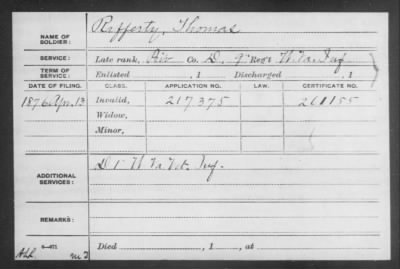 NAME OF SOLDIER: Rifferty, Thomas
SERVICE: Late rank, Priv Co. D, 9" Reg't W. Va. Inf
TERM OF SERVICE: Enlisted , 1 Discharged , 1
DATE OF FILING. CLASS. APPLICATION NO. LAW. CERTIFICATE NO.
1876 Apr. 13 Invalid, 217375 261155
Widow,
Minor,
ADDITIONAL SERVICES: D 1 W Va Vet. Inf.
REMARKS:
Died , 1 , at